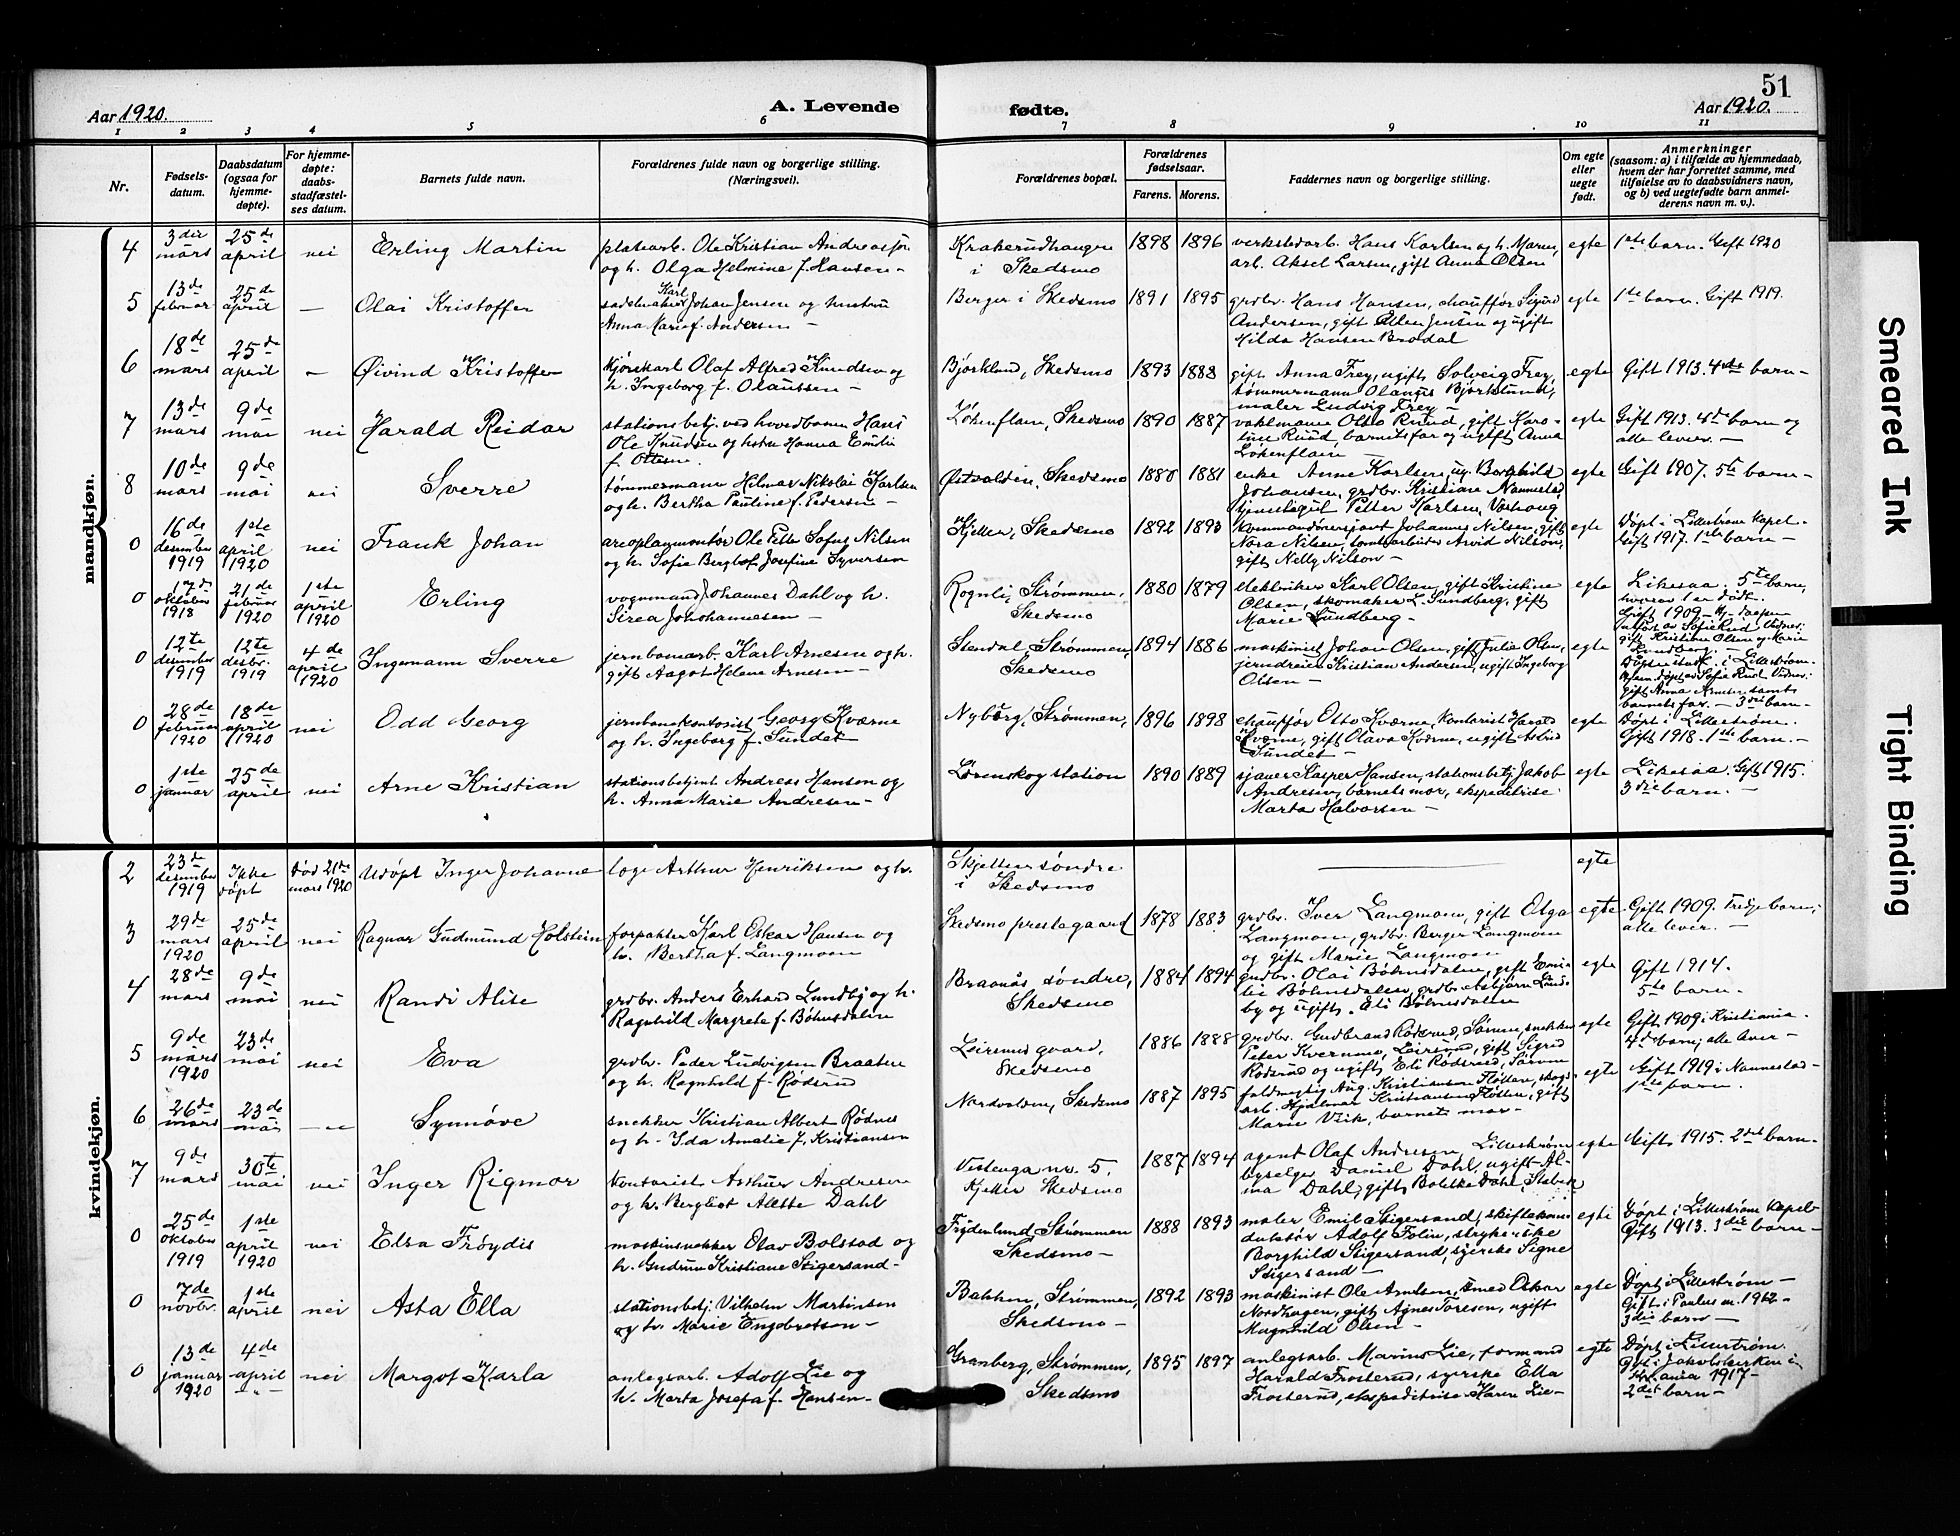 51
Aar 1920.
A. Levende
fødte.
Aar 1920.
1 2 3 4 5 6 7 8 9 10 11
Nr.
Fødsels-
datum.
Daabsdatum
(ogsaa for
hjemme-
døpte).
For hjemme-
døpte:
daabs-
stadfæstel-
ses datum.
Barnets fulde navn.
Forældrenes fulde navn og borgerlige stilling.
(Næringsvei).
Forældrenes bopæl.
Forældrenes
fødselsaar.
Farens. Morens.
Faddernes navn og borgerlige stilling.
Om egte
eller
uegte
født.
Anmerkninger
(saasom: a) i tilfælde av hjemmedaab,
hvem der har forrettet samme, med
tilføielse av to daabsvidners navn,
og b) ved uegtefødte barn anmel-
derens navn m. v.).
mandkjøn.
4
3die
mars
25de
april
nei
Erling Martin
platearb. Ole Kristian Andreassen
og h. Olga Helmine f. Hansen –
Krakerudhaugen
i Skedsmo
1898 1896
verkstedarb. Hans Karlsen og h. Maren,
arb. Aksel Larsen, gift Anna Olsen
egte
1ste barn. Gift 1920
5
13de
februar
25de
april
—
Olai Kristoffer
Karl
sadelmaker Johan Jensen og hustru
Anna Marie f. Andersen –
Berger i Skedsmo
1891 1895
grdbr. Hans Hansen, chauffør Sigurd
Andersen, gift Ellen Jensen og ugift
Hilda Hansen Brodal
egte
1ste barn. Gift 1919.
6
18de
mars
25de
april
–
Øivind Kristoffer
kjørekarl Olaf Alfred Knudsen og
h. Ingeborg f. Olaussen –
Bjørklund, Skedsmo
1893 1888
gift Anna Frey, ugift Solveig Frey,
tømmermann Olaus Bjørklund,
maler Ludvig Frey –
egte
Gift 1913. 4de barn –
7
13de
mars
9de
mai
nei
Harald Reidar
stationsbetj. ved hovedbanen Hans
Ole Knudsen og hstru Hanna Emilie
f. Ottesen.
Løkenflaen, Skedsmo
1890 1887
vaktmann Otto Ruud, gift Karo-
line Ruud, barnets far og ugift Anna
Løkenflaen –
egte
Gift 1913. 4de barn og
alle lever. –
8
10de
mars
9de
mai
nei
Sverre
tømmermann Hilmar Nikolai Karlsen
og h. Bertha Pauline f. Pedersen –
Østvolden, Skedsmo
1880 1881
enke Anne Karlsen, ug. Borghild
Johansen, grdbr. Kristian Nannestad,
Petter Karlsen,
egte
Gift 1907. 5te barn –
0
16de
desember
1919
1ste
april
1920
nei
Frank Johan
aeroplanmontør Ole Petter Sofus Nilsen
og h. Sofie Bergljot Josefine Syversen
Kjeller, Skedsmo
1892 1893
Johannes Nilsen, gift
Nora Nilsen, Arvid Nilson,
gift Nelly Nilson –
egte
Døpt i Lillestrøm kapel.
Gift 1917. 1ste barn –
0
17de
oktober
1918
21de
februar
1920
1ste
april
1920
Erling
vognmand Johannes Dahl og h.
Sirea Johohannesen –
Rognli, Strømmen,
Skedsmo
1880 1879
elektriker Karl Olsen, gift Kristine
Olsen, skomaker L. Sundberg, gift
Marie Sundberg –
egte
Likesaa. 5te barn,
hvorav 1 er død.
Gift 1909 – Hj. daapen
utført av Sofie Rud. Vidner:
gift Kristine Olsen og Marie
Sundberg. –
0
12te
desember
1919
12te
desbr.
1919
4de
april
1920
Ingemann Sverre
jernbanearb. Karl Arnesen og h.
gift Aagot Helene Arnesen –
Stendal, Strømmen,
Skedsmo
1894 1886
maskinist Johan Olsen, gift Julie Olsen,
jerndreier Kristian Andersen, ugift Ingeborg
Olsen –
egte
i Lillestrøm.
Hjem. døpt av Sofie Rud. Vidner:
gift Anna Arnesen samt
barnets far. – 3die barn –
0
28de
februar
1920
18de
april
1920
nei
Odd Georg
jernbanekontorist Georg Kværne
og h. Ingeborg f. Sundet
Nyborg, Strømmen,
1896 1898
chauffør Otto Kværne, kontorist Harald
Kværne, gift Olava Kværne, ugift Astrid
Sundet –
egte
Døpt i Lillestrøm.
Gift 1918. 1ste barn. –
0
1ste
januar
25de
april
nei
Arne Kristian
stationsbetjent Andreas Hansen og
h. Anna Marie Andresen –
Lørenskog station
1890 1889
sjauer Kasper Hansen, stationsbetj. Jakob
Andresen, barnets mor, ekspeditrise
Marta Halvorsen –
egte
Likesaa. Gift 1915.
3die barn. –
kvindekjøn.
2
23de
desember
1919
Ikke
døpt
død 21de
mars 1920
Udøpt Inger Johanne
loge Arthur Henriksen og h.
Skjetten søndre
i Skedsmo
—
egte
3
29de
mars
1920
25de
april
nei
Ragnar Gudmund Holstein
forpakter Karl Oskar Hansen og
h. Bertha f. Langmoen
Skedsmo prestegaard
1878 1883
grdbr. Iver Langmoen, gift Olga
Langmoen, grdbr. Berger Langmoen
og gift Marie Langmoen
egte
Gift 1909. Tredje barn;
alle lever. –
4
28de
mars
9de
mai
nei
Randi Alise
grdbr. Anders Erhard Lundby og h.
Ragnhild Margrete f. Bøhnsdalen
Braanås, søndre,
Skedsmo
1884 1894
grdbr. Olai Bøhnsdalen, gift Emi-
lie Bøhnsdalen, grdbr. Asbjørn Lund-
by og ugift Eli Bøhnsdalen
egte
Gift 1914.
5te barn. –
5
9de
mars
1920
23de
mai
nei
Eva
grdbr. Peder Ludvigsen Braaten
og h. Ragnhild f. Rødsrud
Leirsund gaard,
Skedsmo
1886 1888
grdbr. Gudbrand Rødsrud, Sørum, snekker
Peter Kvernmo, Leirsund, gift Sigrid
Rødsrud og ugift Eli Rødsrud, Sørum
egte
Gift 1909 i Kristiania.
4de barn; alle lever –
6
26de
mars
23de
mai
– „ –
Synnøve
snekker Kristian Albert Rødnes
og h. Ida Amalie f. Kristiansen
Nordvolden, Skedsmo
1887 1895
fuldmegtig Aug. Kristiansen Fløtten, skog-
arb. Hjalmar Kristiansen Fløtten, gift
Marie Vik, barnets mor –
egte
Gift 1919 i Nannestad –
1ste barn.
7
9de
mars
30te
mai
nei
Inger Rigmor
kontorist Arthur Andresen
og h. Bergliot Alette Dahl
Vestenga nr. 5.
Kjeller Skedsmo
1887 1894
agent Olaf Andresen, Lillestrøm,
byselger Daniel Dahl, ugift Al-
ma Dahl, gift Bolette Dahl,
egte
Gift 1915. 2det barn –
0
25de
oktober
1919
1ste
april
1920
nei
Elsa Frøydis
maskinsnekker Olav Bolstad og
h. Gudrun Kristiane Stigersand –
Frydenlund, Strømmen
Skedsmo –
1888 1893
maler Emil Stigersand, skiftekon-
duktør Adolf Folin, strykerske
Borghild Stigersand, syerske Signe
Stigersand –
egte
Døpt i Lillestrøm kapel.
Gift 1913. 3die barn –
0
7de
novbr.
1ste
april
nei
Asta Ella
stationsbetj. Vilhelm Martinsen
og h. Marie Engebretsen –
Bakken, Strømmen,
Skedsmo –
1892 1893
maskinist Ole Arnesen, smed Oskar
Nordhagen, gift Agnes Toresen, ugift
Magnhild Olsen –
egte
Døpt i Lillestrøm –
Gift i Paulus m. 1912 –
3die barn –
0
13de
januar
1920
4de
april
– „ –
nei
Margot Karla
anlegsarb. Adolf Lie og
h. Marta Josefa f. Hansen –
Granberg, Strømmen,
Skedsmo
1895 1897
anlegsarb. Marius Lie, formand
Harald Frosterud, syerske Ella
Frosterud, ekspeditrise Karen Lie –
egte
Døpt i Lillestrøm.
Gift i Jakobskirken i
Kr.ania 1917 –
2det barn –
Smeared Ink
Tight Binding